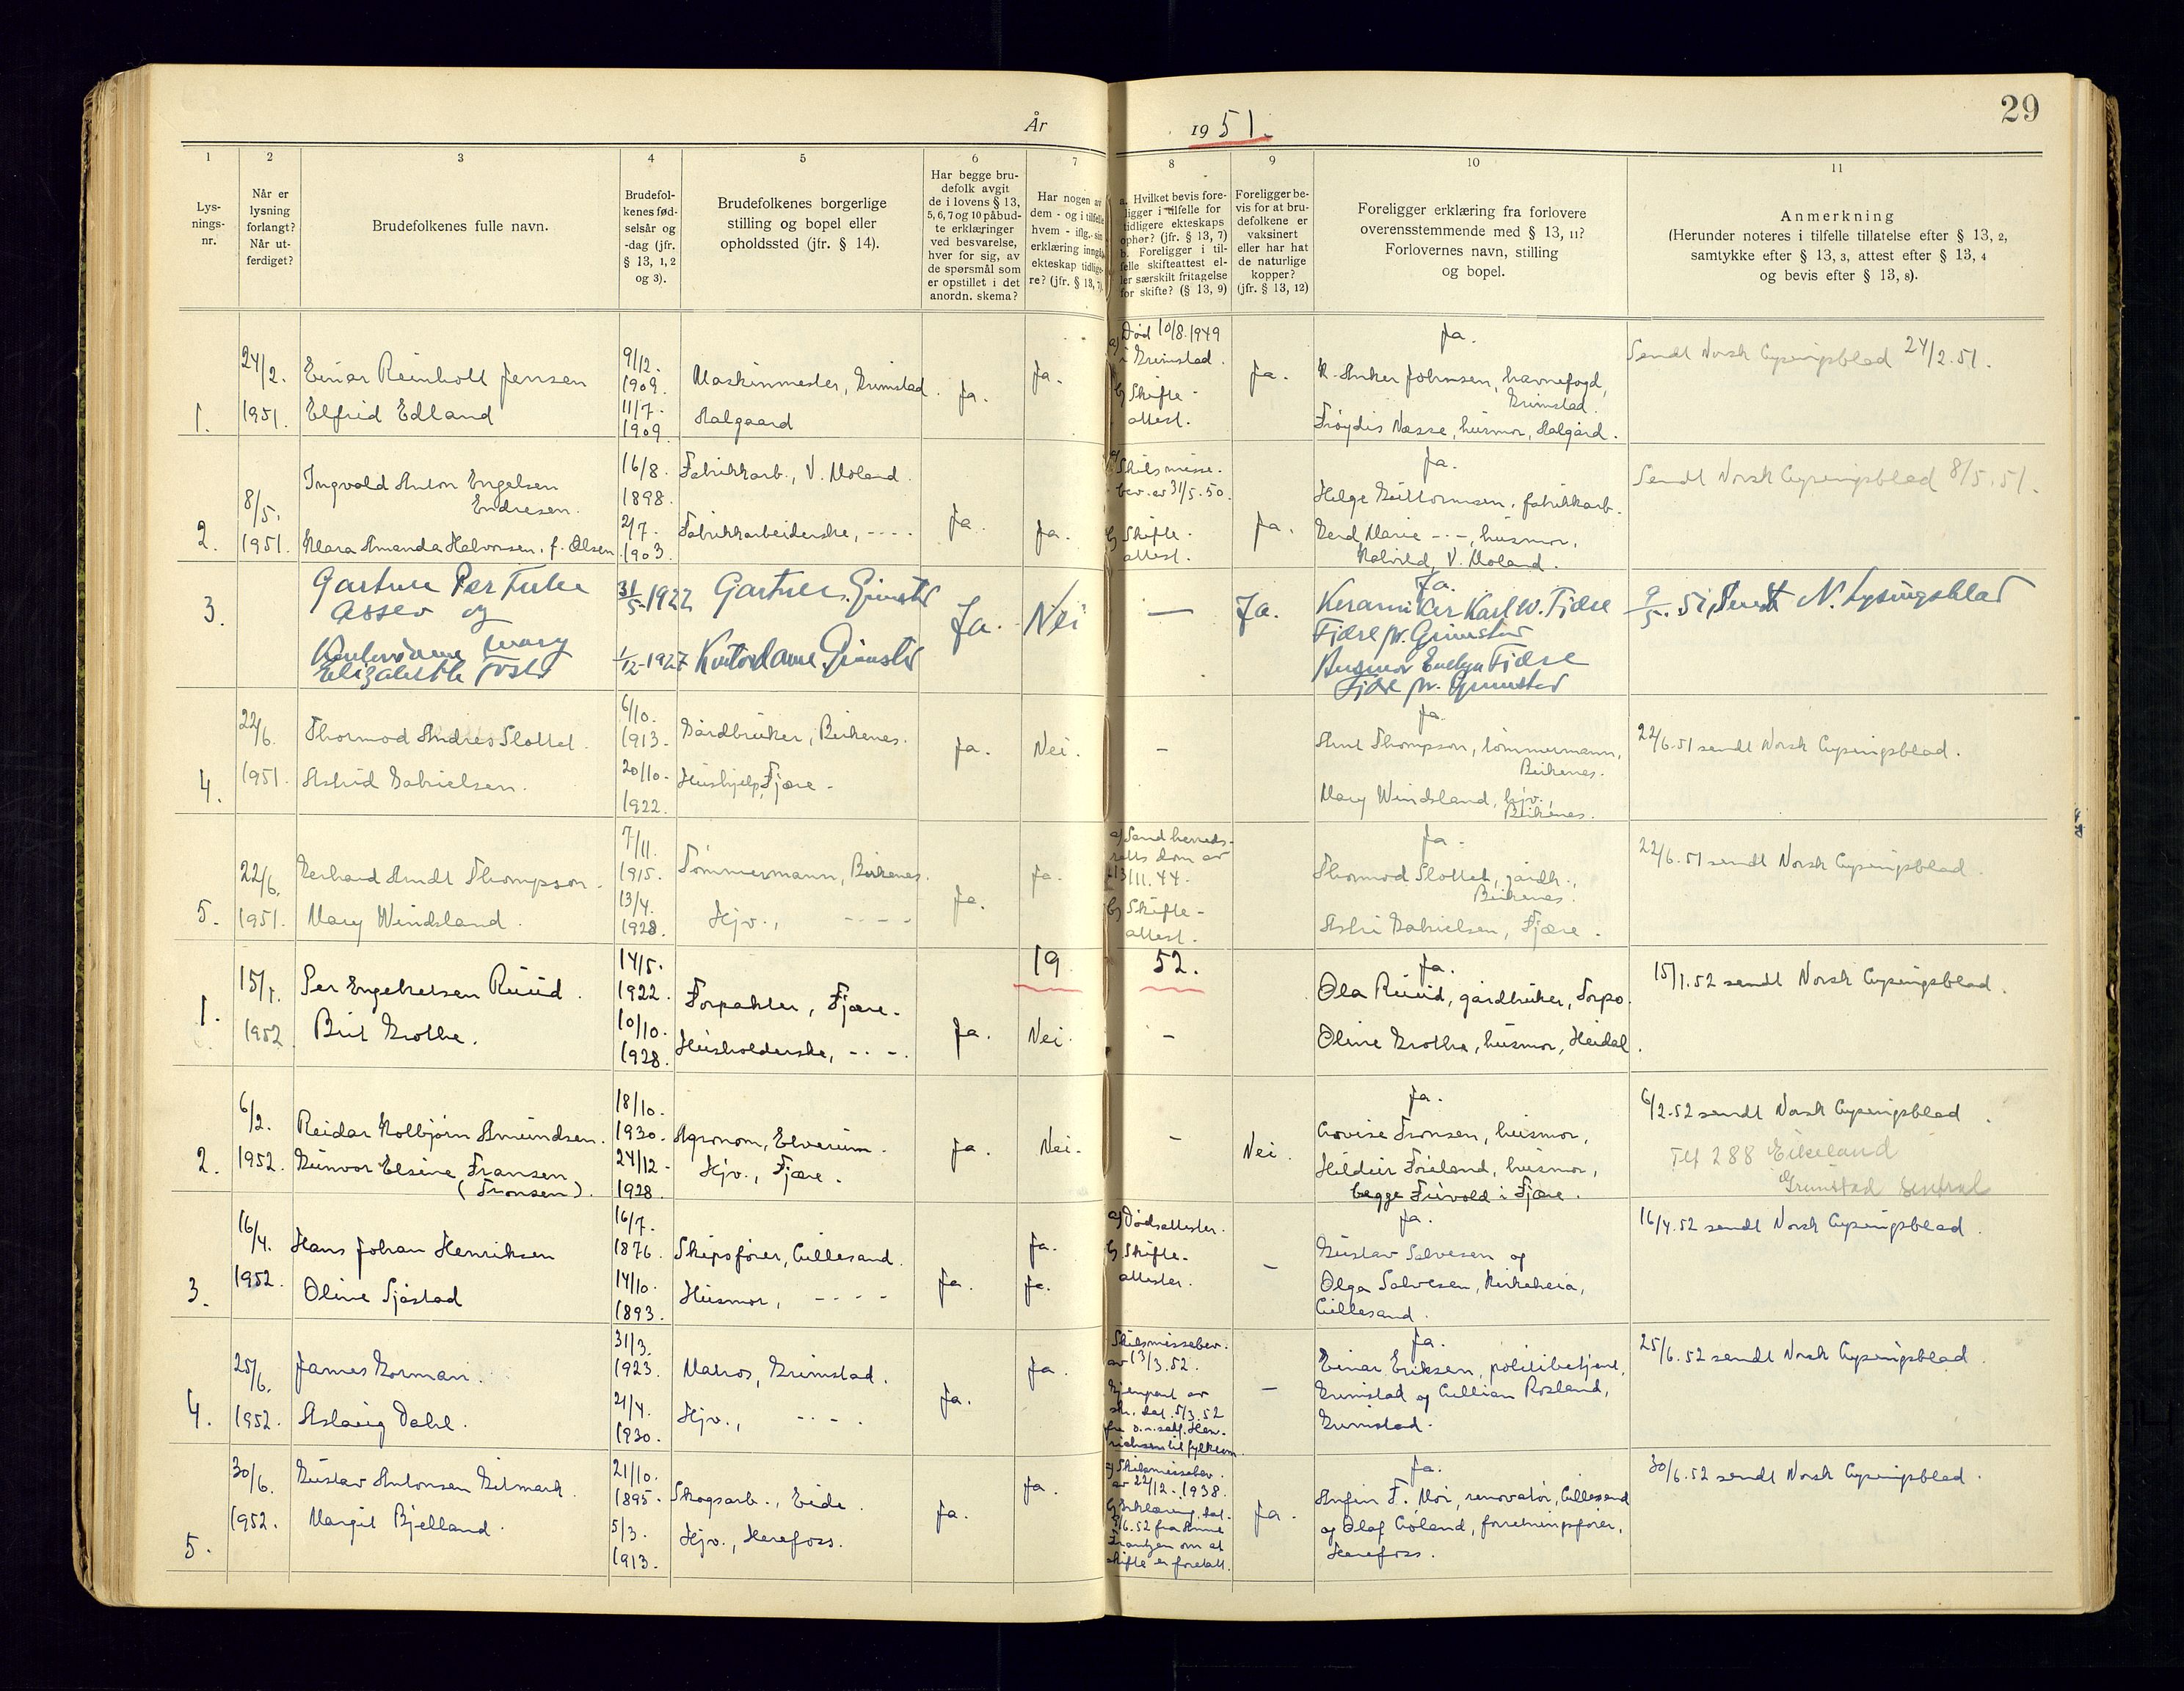 29
År 1951.
1 2 3 4 5 6 7 8 9 10 11
Lys-
nings-
nr.
Når er
lysning
forlangt?
Når ut-
ferdiget?
Brudefolkenes fulle navn.
Brudefol-
kenes fød-
selsår og
-dag (jfr.
§ 13, 1, 2
og 3).
Brudefolkenes borgerlige
stilling og bopel eller
opholdssted (jfr. § 14).
Har begge bru-
defolk avgit
de i lovens § 13,
5, 6, 7 og 10 påbud-
te erklæringer
ved besvarelse,
hver for sig, av
de spørsmål som
er opstillet i det
anordn. skema?
Har nogen av
dem - og i tilfelle
hvem - iflg. sin
erklæring inngått
ekteskap tidlige-
re? (jfr. § 13, 7).
a. Hvilket bevis fore-
ligger i tilfelle for
tidligere ekteskaps
ophør? (jfr. § 13, 7)
b. Foreligger i til-
felle skifteattest el-
ler særskilt fritagelse
for skifte? (§ 13, 9)
Foreligger be-
vis for at bru-
defolkene er
vaksinert
eller har hat
de naturlige
kopper?
(jfr. § 13, 12)
Foreligger erklæring fra forlovere
overensstemmende med § 13, 11?
Forlovernes navn, stilling
og bopel.
Anmerkning
(Herunder noteres i tilfelle tillatelse efter § 13, 2,
samtykke efter § 13, 3, attest efter § 13, 4
og bevis efter § 13, 8).
1.
24/2.
1951.
Einar Reinholt Jensen
Elfrid Edland
9/12.
1909.
11/7.
1909.
Maskinmester, Grimstad.
Aalgaard
Ja.
Ja.
a) Død 10/8.1949
i Grimstad.
b) Skifte-
attest.
Ja.
Ja.
K. Anker Johnsen, havnefogd,
Grimstad.
Frøydis Næsse, husmor, Aalgård.
Sendt Norsk Lysingsblad 24/2.51.
2.
8/5.
1951.
Ingvald Anton Engelsen
Endresen.
Klara Amanda Halvorsen, f. Olsen
16/8.
1898.
2/7.
1903.
Fabrikkarb., V. Moland.
Fabrikkarbeiderske, ----
Ja.
Ja.
a) Skilsmisse-
bev. av 31/5.50.
b) Skifte-
attest.
Ja.
Ja.
Helge Guttormsen, fabrikkarb.
Gerd Marie ---, husmor,
V. Moland.
Sendt Norsk Lysingsblad 8/5.51.
3.
Gartner Per Tule
Assev og
Kontordame Mary
Elizabeth
31/5-1922
1/12-1927
Gartner. Grimstad
Kontordame. Grimstad
Ja.
Nei
—
Ja.
Ja.
Keramiker Karl W. Fjære
Fjære pr. Grimstad
Husmor Evelyn Fjære
Fjære pr. Grimstad
9/5. 51, Sendt N. Lysingsblad
4.
22/6.
1951.
Thormod Andres Slottet.
Astrid Gabrielsen.
6/10.
1913.
20/10.
1922.
Gårdbruker, Birkenes.
Hushjelp, Fjære.
Ja.
Nei.
—
Ja.
Arnt Thompson, tømmermann,
Birkenes.
Mary Windsland, hjv.,
Birkenes.
22/6.51 sendt Norsk Lysingsblad.
5.
22/6.
1951.
Gerhard Arndt Thompson.
Mary Windsland.
7/11.
1915.
13/4.
1928.
Tømmermann, Birkenes.
Hjv., ----
Ja.
Ja.
a) Sand herreds-
retts dom av
13/11.44.
b) Skifte-
attest.
Ja.
Thormod Slottet, gårdb.,
Birkenes.
Astri Gabrielsen, Fjære.
22/6.51 sendt Norsk Lysingsblad.
1952.
1.
15/1.
1952
Per Engebretsen Ruud.
Brit Grothe.
14/5.
1922.
10/10.
1928.
Forpakter, Fjære.
Husholderske, -.-.
Ja.
Nei.
—
Ja.
Ola Ruud, gårdbruker, Torpo.
Oline Grothe, husmor, Heidal.
15/1.52 sendt Norsk Lysingsblad.
2.
6/2.
1952.
Reidar Kolbjørn Amundsen.
Gunvor Elsine Fransen
(Tronsen).
18/10.
1930.
24/12.
1928.
Agronom, Elverum.
Hjv., Fjære.
Ja.
Nei.
—
Nei.
Ja.
Lovise Tronsen, husmor,
Hildur Foreland, husmor,
begge Frivold i Fjære.
6/2.52 sendt Norsk Lysingsblad.
Tlf 288 Eikeland
Grimstad sentral
3.
16/4.
1952.
Hans Johan Henriksen
Oline Sjåstad
16/7.
1876.
14/10.
1893.
Skipsfører, Lillesand.
Husmor, ----
Ja.
Ja.
Ja.
a) Dødsattester.
b) Skifte-
attester.
—
Ja.
Gustav Salvesen og
Olga Salvesen, Kirkeheia,
Lillesand.
16/4.52 sendt Norsk Lysingsblad.
4.
25/6.
1952.
James Gorman.
Aslaug Dahl.
31/3.
1923.
21/4.
1930.
Matros, Grimstad.
Hjv., ----
Ja.
Ja.
Skilsmissebev.
av 13/3.52.
Gjenpart av
skr. dat. 5/3.52
fra o.r.sakf. Hen-
richsen til fylkesm.
—
Ja.
Einar Eriksen, politibetjent,
Grimstad og Lillian Rosland,
Grimstad.
25/6.52 sendt Norsk Lysingsblad.
5.
30/6.
1952.
Gustav Antonsen Gitmark.
Margit Bjelland.
21/10.
1895.
5/3.
1913.
Skogsarb., Eide.
Hjv., Herefoss.
Ja.
Ja.
a) Skilsmissebev.
av 22/12.1938.
b) Erklæring, dat.
/6.52 fra Anne
Frantzen om at
skifte er foretatt.
Ja.
Ja.
Anfin F. Moi, renovatør, Lillesand
og OlafLøland, forretningsfører,
Herefoss.
30/6.52 sendt Norsk Lysingsblad.